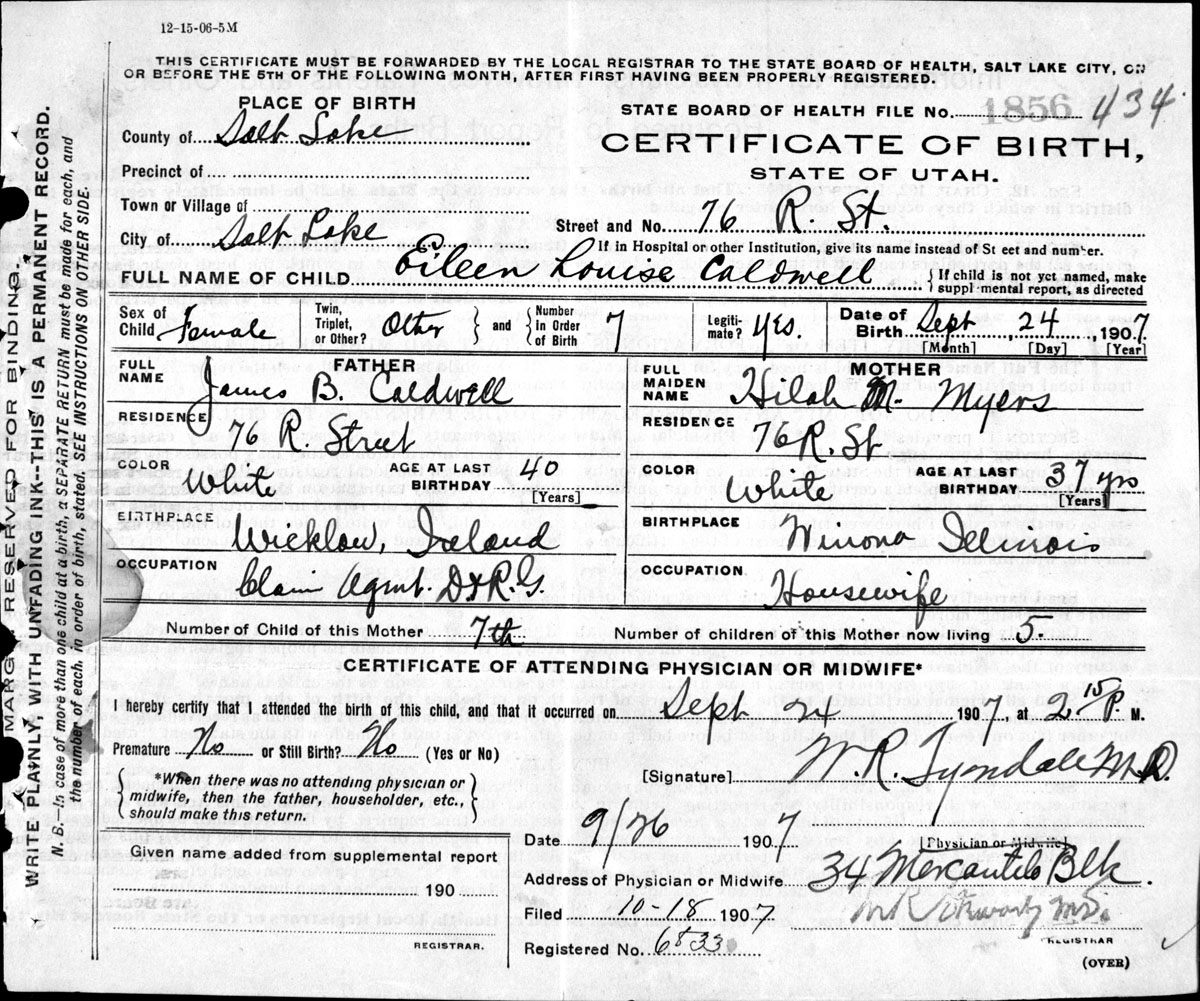 12-15-06-5M
THIS CERTIFICATE MUST BE FORWARDED BY THE LOCAL REGISTRAR TO THE STATE BOARD OF HEALTH, SALT LAKE CITY, ON
OR BEFORE THE 5TH OF THE FOLLOWING MONTH, AFTER FIRST HAVING BEEN PROPERLY REGISTERED.
PLACE OF BIRTH
County of Salt Lake
Precinct of
Town or Village of
City of Salt Lake
STATE BOARD OF HEALTH FILE No. 1856 434
CERTIFICATE OF BIRTH,
STATE OF UTAH.
Street and No. 76 R St.
If in Hospital or other Institution, give its name instead of St eet and number.
FULL NAME OF CHILD Eileen Louise Caldwell
{ If child is not yet named, make
suppl mental report, as directed
Sex of Child Female
Twin, Triplet, or Other? Other } and { Number in Order of Birth 7
Legiti-mate? Yes.
Date of Birth Sept 24 1907
[Month] [Day] [Year]
FATHER
FULL NAME James B. Caldwell
RESIDENCE 76 R Street
COLOR White AGE AT LAST BIRTHDAY 40
[Years]
BIRTHPLACE Wicklow, Ireland
OCCUPATION Claim Agent. D&R.G.
MOTHER
FULL MAIDEN NAME Hilah M. Myers
RESIDENCE 76 R. St
COLOR White AGE AT LAST BIRTHDAY 37 yrs
[Years]
BIRTHPLACE Winona Illinois
OCCUPATION Housewife
Number of Child of this Mother 7th Number of children of this Mother now living 5.
CERTIFICATE OF ATTENDING PHYSICIAN OR MIDWIFE*
I hereby certify that I attended the birth of this child, and that it occurred on Sept 24 1907, at 2 15 P. M.
Premature No or Still Birth? No (Yes or No)
{ *When there was no attending physician or
midwife, then the father, householder, etc.,
should make this return. }
[Signature] W. R. Tyndale M.D.
[Physician or Midwife]
Date 9/26 1907
Address of Physician or Midwife 34 Mercantile Blk.
Filed 10-18 1907
Registered No. 6833
REGISTRAR
(OVER)
Given name added from supplemental report
190
REGISTRAR.
MARG RESERVED FOR BINDING.
WRITE PLAINLY, WITH UNFADING INK--THIS IS A PERMANENT RECORD.
N. B.—In case of more than one child at a birth, a SEPARATE RETURN must be made for each, and
the number of each, in order of birth, stated. SEE INSTRUCTIONS ON OTHER SIDE.